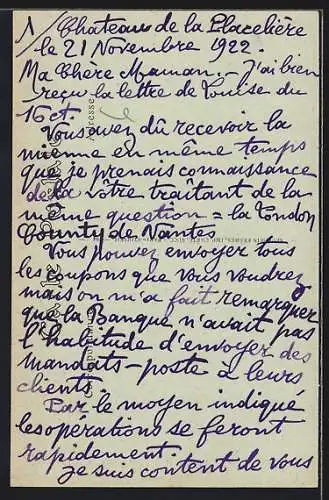 1/ Chateau de la Placelière
le 21 Novembre 1922.
Ma Chère Maman. - J'ai bien
reçu la lettre de Louise du
16 ct.
Vous avez dû recevoir la
mienne en même temps
que je prenais connaissance
de la vôtre traitant de la
même question = la London
County de Nantes
Vous pouvez envoyer tous
les coupons que vous voudrez
mais on m'a fait remarquer
que la Banque n'avait pas
l'habitude d'envoyer des
mandats-poste à leurs
clients
Par le moyen indiqué
les opérations se feront
rapidement.
Je suis content de vous
Adresse